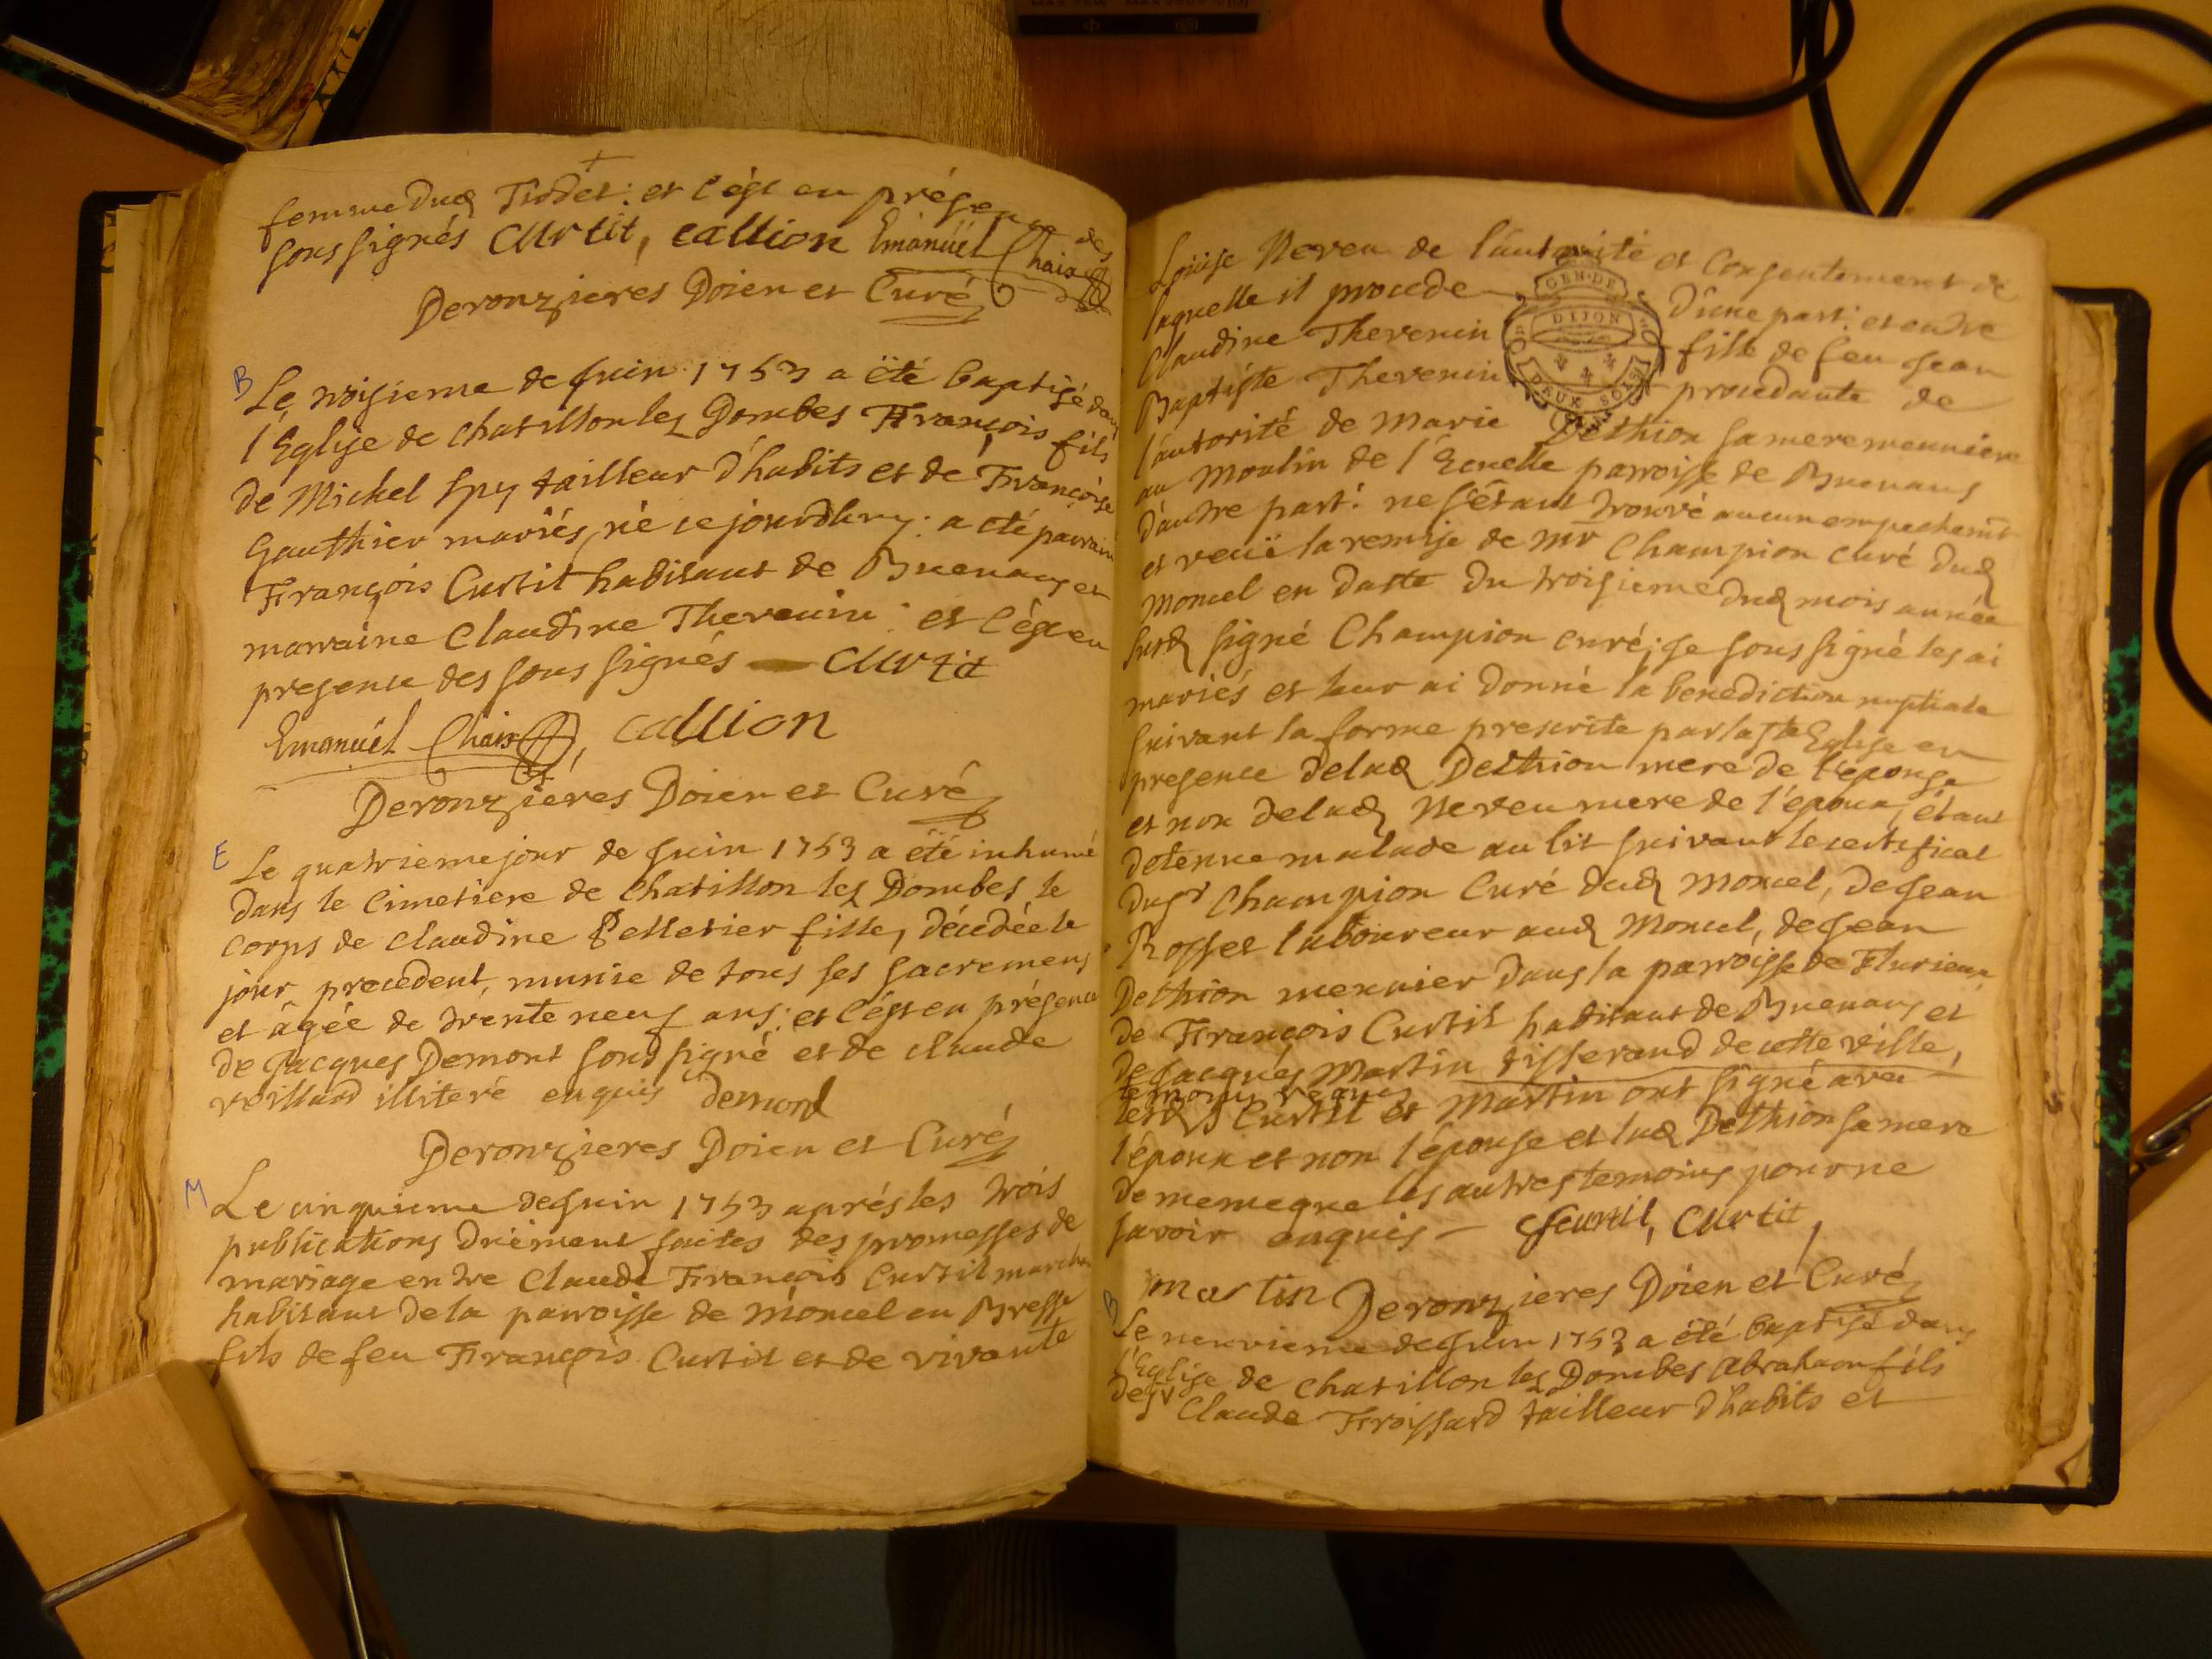 femme dud Tisset: et c'est en présence des
soussignés Curtit, callion Emanüel Chaix
Deronzieres Doien et Curé
B Le troisieme de juin 1753 a été baptisé dans
l'Eglise de chatillon lez Dombes François fils
de Michel Spy tailleur d'habits et de Françoise
Gauthier mariés, né ce jourdhuy: a été parrain
François Curtil habitant de Buenans et
marraine Claudine Thevenin: et c'est en
presence des sous signés — Curtit
Emanüel Chaix, callion
Deronzieres Doien et Curé
E Le quatrieme jour de juin 1753 a été inhumé
dans le cimetiere de chatillon lez Dombes le
corps de claudine Pelletier fille, décédée le
jour precedent, munie de tous ses sacremens
et âgée de trente neuf ans: et c'est en présence
de jacques Demont soussigné et de claude
veillard illiteré enquis demont
Deronzieres Doien et Curé
M Le cinquieme de juin 1753 aprés les trois
publications düement faites des promesses de
mariage entre Claude François Curtil marchand
habitant de la parroisse de moncel en Bresse
fils de feu François Curtil et de vivante
Loüise Neveu de l'autorité et consentement de
laquelle il procede d'une part: et entre
Claudine Thevenin fille de feu jean
Baptiste Thevenin procedante de
l'autorité de Marie Dethion sa mere meuniere
au Moulin de l'Ecuelle parroisse de Buenans
d'autre part: ne s'étant trouvé aucun empechemt
et veuë la remise de mr Champion curé dud
moncel en datte du troisieme dud mois année
susd signé Champion curé; je soussigné les ai
mariés et leur ai donné la benediction nuptiale
suivant la forme prescrite par la ste Eglise en
presence de lad Dethion mere de l'épouse
et non de lad Neveu mere de l'époux, étant
detenue malade au lit suivant le certificat
du sr Champion Curé dud moncel, de jean
Rosset laboureur aud Moncel, de jean
Dethion meunier dans la parroisse de Flurieux,
de François Curtil habitant de Buenans et
de jacques Martin tisserand de cette ville,
temoins requis
lesd Curtil et Martin ont signé avec
l'époux et non l'épouse et lad Dethion sa mere
de meme que les autres temoins pour ne
savoir enquis — Curtit,
martin Deronzieres Doien et Curé
B Le neuvieme de juin 1753 a été baptisé dans
l'Eglise de chatillon lez Dombes Abraham fils
de sr Claude Froissard tailleur d'habits et
GEN. DE
DIJON
DEUX SOLS